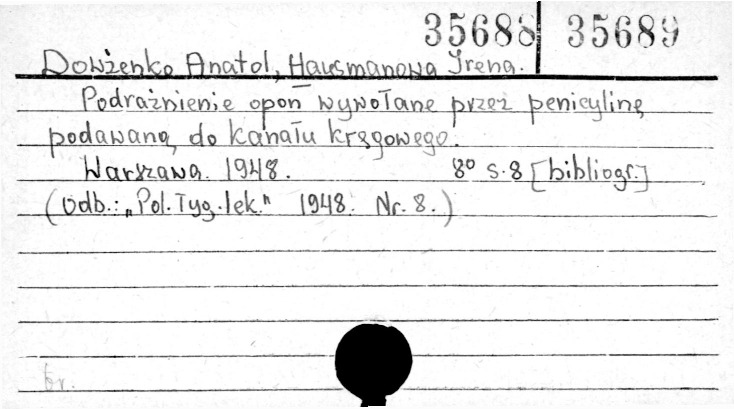 35688 35689
Dowżenko Anatol, Hausmanowa Irena.
Podrażnienie opon wywołane przez penicylinę
podawaną do kanału kręgowego.
Warszawa. 1948. 8º s. 8 [bibliogr.]
(Odb.: „Pol. Tyg. lek." 1948. Nr. 8.)
br.